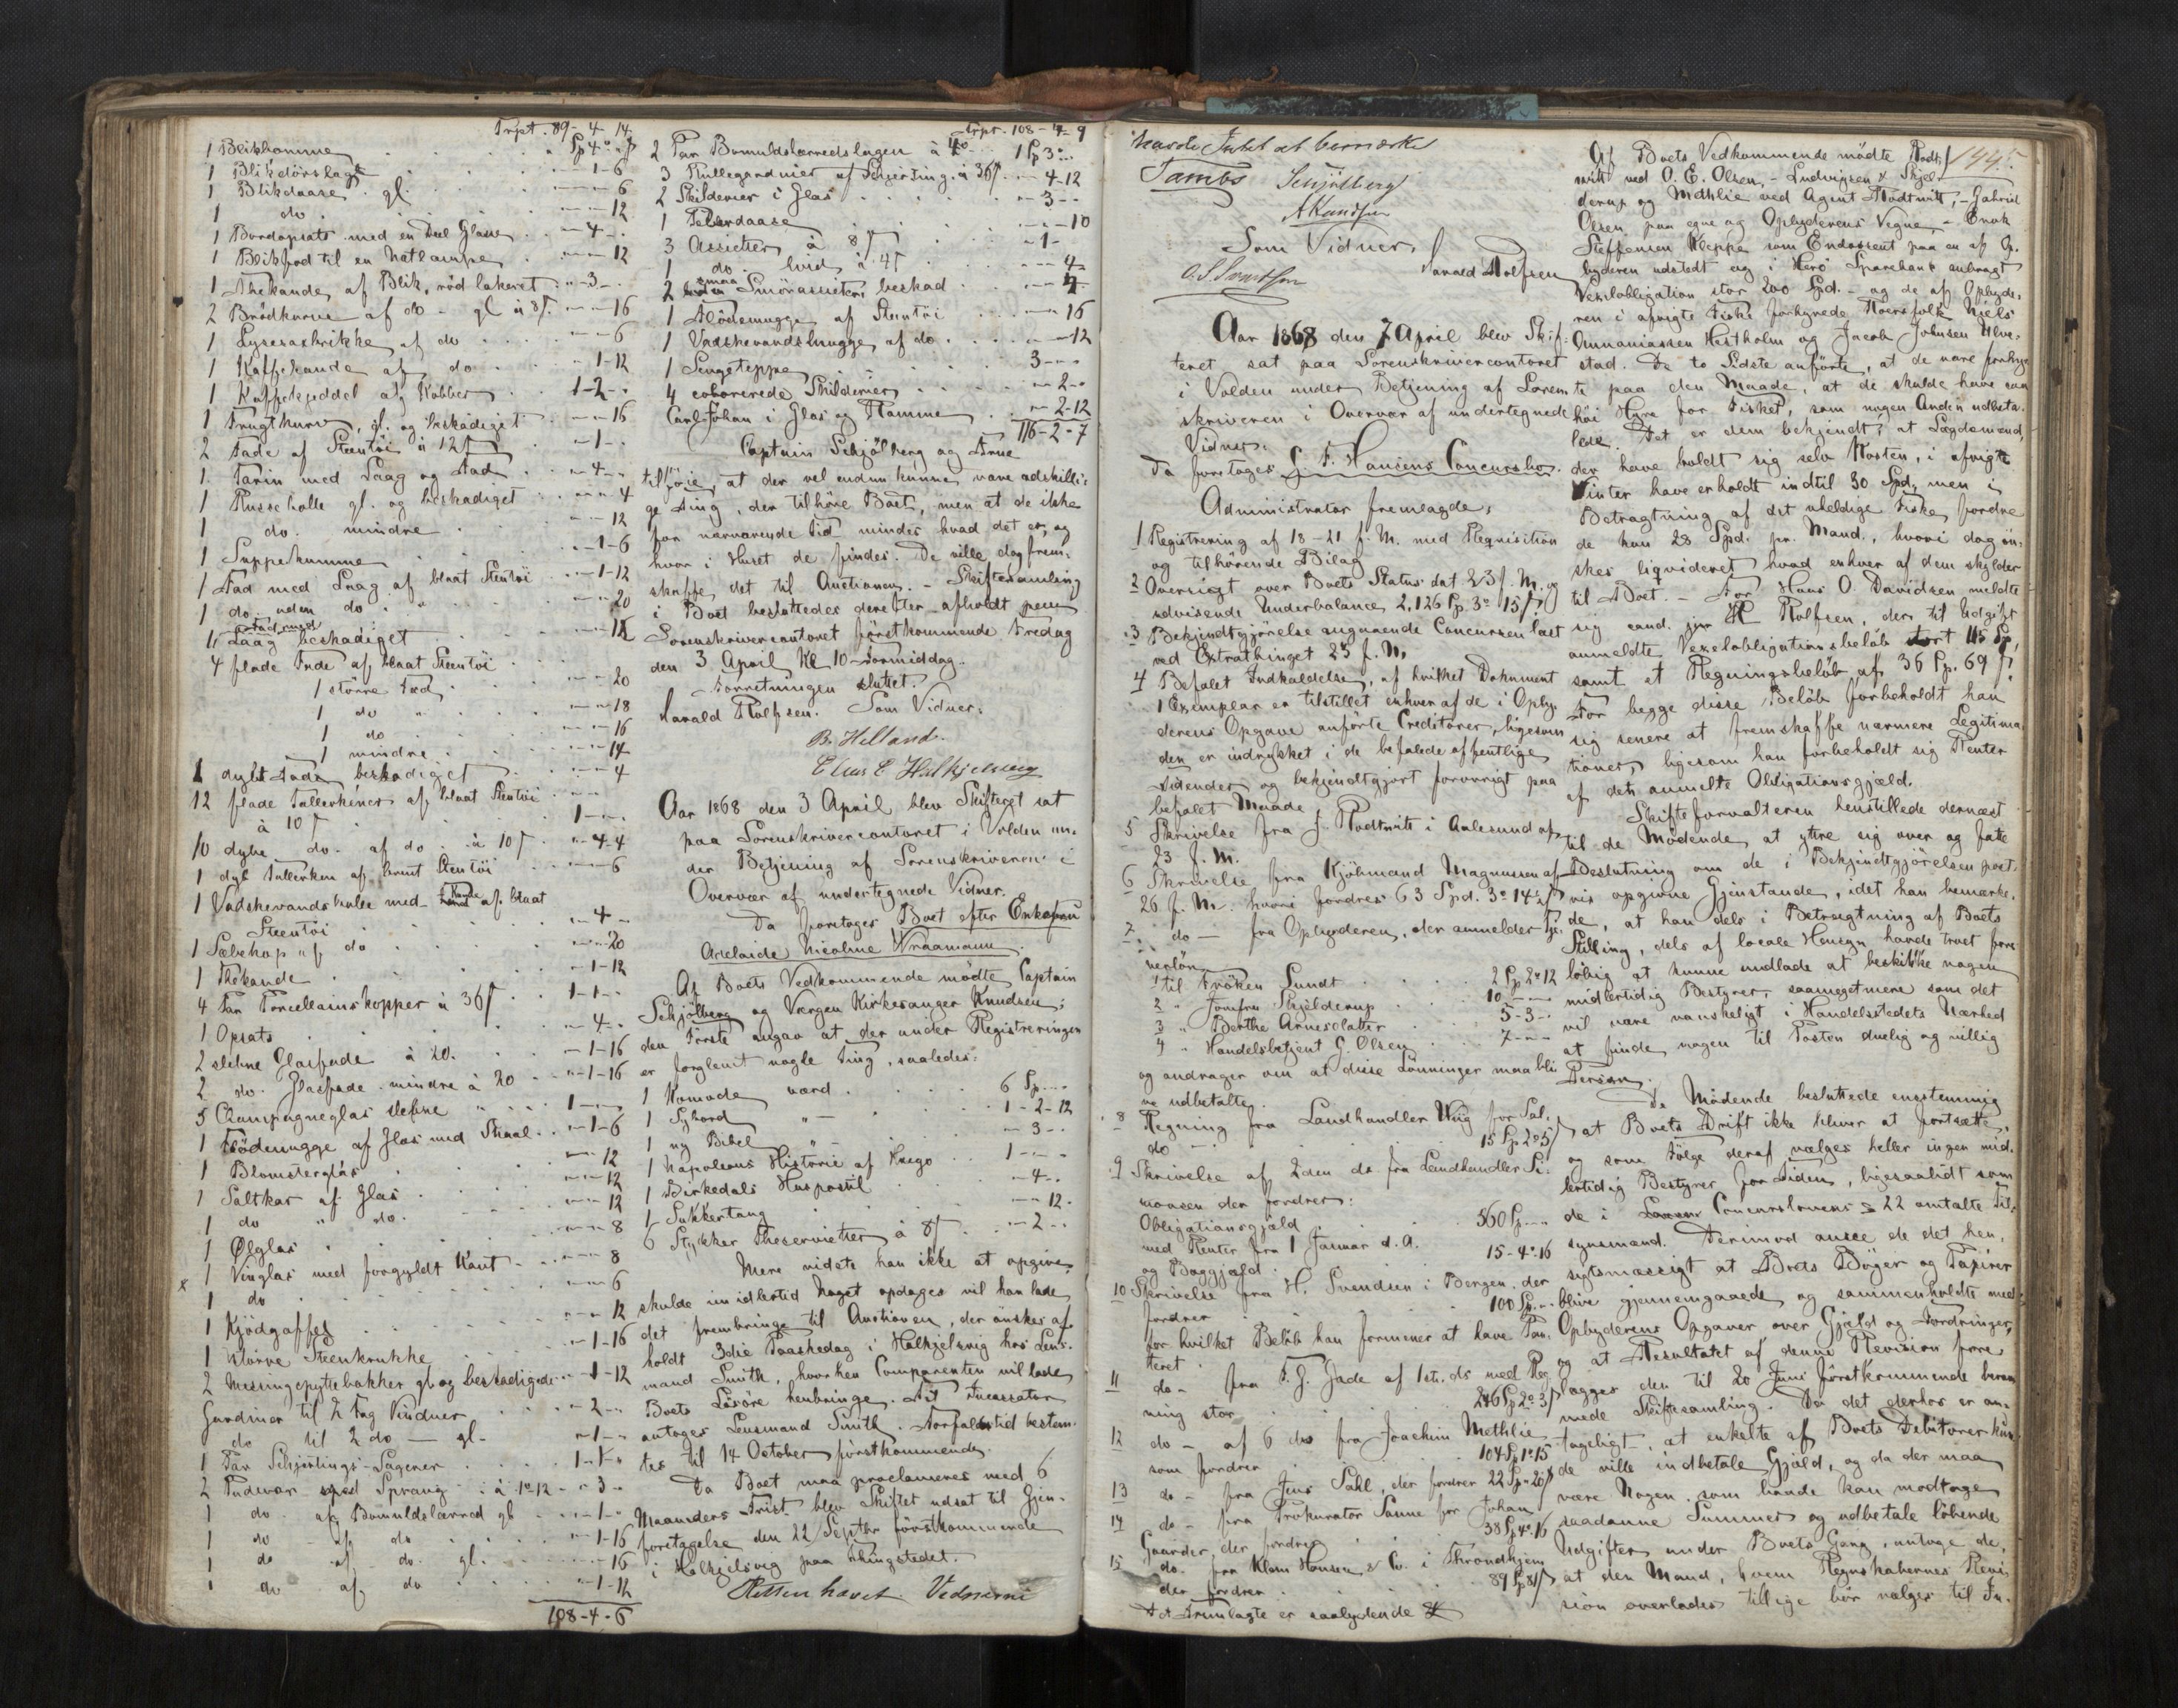 Trpt. 89-4-14.
1 Blikkomme . . . . " Sp 4 " - "
1 Blikdørslag . . . . - 1-6
1 Blikdaase gl. . . . " - " 6
1 do . . . . " - " 12
1 Bordopsats med en Deel Glasse . . " 4 - "
1 Blikfod til en Natlampe . . " - " 12
1 Thekande af Blik, rød lakeret . " - 3 - "
2 Brødkurve af do - gl à 8 ß. " - " 16
1 Lysesaxbrikke af do . . . . " - " 6
1 Kaffekande af do . . . " 1-12
1 Kaffekjeddel af Kobber . . . 1-2- "
1 Frugtkurv, gl. og beskadiget . . " - " 16
2 Fade af Steentøi à 12 ß . . " - 1 - "
1. Tarin med Laag og Fad . . " - 4 - "
1 Punsebolle gl. og beskadiget . . " - " 4
1 do. mindre . . . . " - " 12
1 Suppekumme . . . . " - 1-6
1 Fad med Laag af blaat Steentøi . . " - 1-12
1 do uden do . " . . . " - " 20
1 Fad med Laag beskadiget . . . " - " 12
4 flade Fade af blaat Steentøi
1 større Fad . . . . " - " 20
1 do " . . . . " - " 18
1 do . . . . " - " 16
1 mindre . . . . " - " 14
1 dybt Fad beskadiget . . . " - " 4
12 flade Tallerkener af blaat Steentøi
à 10 ß . . . . 1 - " - "
10 dybe do. af do . . à 10 ß . " - 4-4
1 dyb Tallerken af brunt Steentøi . . " - " 6
1 Vadskevandskulle med Kande af blaat
Steentøi . . . . " - 4 - "
1 Sæbekop af do . . . . " - " 20
1 Thekande . . . . " - 1-12
4 Par Porcellainskopper à 36 ß . . 1-1- "
1 Opsats . . . . " - 4 - "
2 slebne Glasfade à 20. . . " - 1-16
2 do. Glasfade mindre à 20 . . " - 1-16
5 Champagneglas slebne " . . 1 - " - "
1 Flødemugge af Glas med Skaal . . " - 1-6
1 Blomsterglas . . . . " - " 12
1 Saltkar af Glas . . . . " - " 12
1 do " do. . . . " - " 12
1 Ølglas . . . . " - " 8
1 Vinglas med forgyldt Kant . . " - " 8
x 1 do . . . . " - " 6
1 Kjødgaffel . . . . " - " 12
1 større Steenkrukke . . . " - 1-16
2 Messingspyttebakker gl og beskadigede " - 1-12
Gardiner til 2 Fag Vinduer . . " - 2 - "
do til 2 do - gl. . . " - 1 - "
1 Par Schjertings-Lagener . . . 1-1- "
2 Pudevar med Sprang . à 1 " 12 - " - 3 - "
1 do . af Bomuldslærred gl . . " - 1 - "
1 do - af do . . . " - 1-16
1 do - af do . gl. . . . " - " 16
1 do af do . . . . " - 1-12
108-4-6
Trpt. 108-4-9
2 Par Bomuldslærredslagen à 4 " . . 1 Sp 3 " "
3 Rullegardiner af Schjerting à 36 ß . " - 4-12
2 Skilderier i Glas . . . . " - 3 - "
1 Peberdaase . . . . " - " 10
3 Assietter à 8 ß . . . " - 1 -
1 do. hvid à 4 ß . . . " - " 4
2 smaa Smørassietter beskad . . " - " 4
1 Flødemugge af Steentøi . . . " - " 16
1 Vadskevandsmugge af do . . . " - " 12
1 Sengeteppe . . . . 3 - " - "
4 colorerede Skilderier . . . " - 2 - "
Carl Johan i Glas og Ramme . . " - 2-12
116-2-7
Captain Schjølberg og Arne
tilføie, at der vel endnu kunne være adskilli-
ge Ting, der tilhøre Boet, men at de ikke
for nærværende Tid mindes hvad det er, og
hvor i Huset de findes. De ville dog frem-
skaffe det til Auctionen. - Skiftesamling
i Boet besluttedes derefter afholdt paa
Sorenskrivercontoret førstkommende Fredag
den 3 April Kl 10 Formiddag.
Forretningen sluttet.
Harald Rolfsen. Som Vidner:
B. Helland.
Elias E Halkjelsvig
Aar 1868 den 3 April blev Skifteret sat
paa Sorenskrivercontoret i Volden un-
der Betjening af Sorenskriveren i
Overvær af undertegnede Vidner.
Da foretoges Boet efter Enkefru
Adelaide Nicoline Wraamann.
Af Boets Vedkommende mødte Captain
Schjølberg og Værgen Kirkesanger Knudsen;
den Første angav at der under Registreringen
er forglemt nogle Ting, saaledes:
1 Komode værd . . . . 6 Sp " - "
1 Sybord " - . . . 1-2-12
1 ny Bibel " - . . . " - 3 - "
1 Napoleons Historie af Hugo . . 1 - " - "
1 Birkedals Huspostil . . . " - 4 - "
1 Sukkertang . . . . " - " 12.
6 Stykker Theservietter à 8 ß . . " - 2 - "
Mere vidste han ikke at opgive,
skulde imidlertid Noget opdages vil han lade
det frembringe til Auctionen, der ønskes af-
holdt 3die Paaskedag i Halkjelsvig hos Lens-
mand Smith, hvorhen Comparenten vil lade
Boets Løsøre henbringe. Til Incassator
antoges Lensmand Smith. Forfaldstid bestem-
tes til 14 October førstkommende.
Da Boet maa proclameres med 6
Maaneders Frist blev Skiftet udsat til Gjen-
foretagelse den 22 Septbr førstkommende
i Halkjelsvig paa Thingstedet.
Retten hævet. Vedværge
havde Intet at bemærke
Tambs Schjölberg
A Knudsen
Som Vidner,
Harald Rolfsen
Aar 1868 den 7 April blev Skif-
teret sat paa Sorenskrivercontoret
i Volden under Betjening af Soren-
skriveren i Overvær af undertegnede
Vidner.
Da foretoges L. F. Hansens Concursbo.
Administrator fremlagde:
1 Registrering af 18-21 f. M. med Requisition
og tilhørende Bilag
2 Oversigt over Boets Status dat 23 f. M. og
udvisende Underbalance 2,126 Sp. 3 " 15 ß
3 Bekjendtgjørelse angaaende Concursen læst
ved Extrathinget 25 f. M.
4 Befalet Indkaldelse, af hvilket Dokument
1 Exemplar er tilstillet enhver af de i Opby-
derens Opgave anførte Creditorer, ligesom
den er indrykket i de befalede offentlige
Tidender og bekjendtgjort forøvrigt paa
befalet Maade.
5 Skrivelse fra J. Rodtwitt i Aalesund af
23 f. M.
6 Skrivelse fra Kjøbmand Magnussen af
26 f. M. hvori fordres 63 Spd. 3 " 14 ß
7. do - fra Opbyderen, der anmelder Tje-
nerløn
1 til Frøken Lundt . . . 2 Sp 2 " 12
2 " Jomfru Skjelderup . . . 10 - " - "
3 " Berthe Arnesdatter . . . 5-3- "
4 " Handelsbetjent G. Olsen . . 7 - " - "
og andrager om at disse Lønninger maa bli-
ve udbetalte.
8 Regning fra Landhandler Wiig for Sal-
do - . . . 15 Sp 2 " 5 ß
9 Skrivelse af 2den ds fra Landhandler Si-
monsen der fordrer:
Obligationsgjæld . . . 560 Sp " - "
med Renter fra 1 Januar d. A.
og Boggjæld . . . 15-4 " 16
10 Skrivelse fra H. Svendsen i Bergen, der
fordrer . . . 100 Sp " "
for hvilket Beløb han formener at have Pan-
teret.
11 do - fra F. J. Gade af 1ste ds med Reg-
ning stor . . . 246 Sp 2 " 3 ß
12 do - af 6 ds fra Joachim Methlie
som fordrer . . . 104 Sp 1 " 15
13 do - fra Jens Sahl, der fordrer 22 Sp " 20 ß
14 do - fra Prokurator Sanne for Johan
Gaarder, der fordrer . . 38 Sp 4 " 16
15 do. fra Klam Hansen & Co. i Throndhjem
der fordrer . . . 89 Sp 81 ß
Det Fremlagte er saalydende
1445.
Af Boets Vedkommende mødte Rodt-
witt ved O. E. Olsen, - Ludvigsen & Skjel-
derup og Methlie ved Agent Rodtwitt, - Gabriel
Olsen paa egne og Opbyderens Vegne, - Enok
Steffensen Kleppe som Endossent paa en af Op-
byderen udstedt og i Herø Sparebank anbragt
Vexelobligation stor 200 Spd. - og de af Opbyde-
ren i afvigte Fiske forhyrede Roersfolk Niels
Annaniassen Hestholm og Jacob Johnsen Ulve-
stad. De to Sidste anførte, at de vare forhyr-
te paa den Maade, at de skulde have saa
høi Hyre for Fisket, som nogen Anden udbeta-
lede. Det er dem bekjendt, at Lægdemænd,
der have holdt sig selv Kosten, i afvigte
Vinter have erholdt indtil 30 Spd, men i
Betragtning af det uheldige Fiske, fordre
de kun 28 Spd. pr. Mand., hvori dog øn-
skes liqvideret hvad enhver af dem skylder
til Boet. - For Hans O. Davidsen meldte
sig cand. jur H Rolfsen, der til Udgift
anmeldte Vexelobligationsbeløb stort 115 Sp,
samt et Regningsbeløb af 36 Sp. 69 ß.
For begge disse Beløb forbeholdt han
sig senere at fremskaffe nærmere Legitima-
tioner, ligesom han forbeholdt sig Renter
af den anmeldte Obligationsgjæld.
Skifteforvalteren henstillede dernæst
til de Mødende at yttre sig over og fatte
Beslutning om de i Bekjendtgjørelsen præ-
vis opgivne Gjenstande, idet han bemærke-
de, at han dels i Betragtning af Boets
Stilling, dels af locale Hensyn havde troet fore-
løbig at kunne undlade at beskikke nogen
midlertidig Bestyrer, saameget mere som det
vil være vanskeligt i Handelsstedets Nærhed
at finde nogen til Posten duelig og villig
Person.
De Mødende besluttede enstemmig
at Boets Drift ikke bliver at fortsætte,
og som Følge deraf vælges heller ingen mid-
lertidig Bestyrer for Tiden, ligesaalidt som
de i Concurslovens § 22 omtalte Til-
synsmænd. Derimod ansee de det hen-
sigtsmæssigt at Boets Bøger og Papirer
blive gjennemgaaede og sammenholdte med
Opbyderens Opgaver over Gjæld og Fordringer,
og at Resultatet af denne Revision fore-
lægges den til 20 Juni førstkommende beram-
mede Skiftesamling. Da det derhos er an-
tageligt, at enkelte af Boets Debitorer kun-
de ville indbetale Gjæld, og da der maa
være Nogen som hande kan modtage
saadanne Summer og udbetale løbende
Udgifter under Boets Gang, antoge de,
at den Mand, hvem Regnskabernes Revi-
sion overlades tillige bør vælges til In-